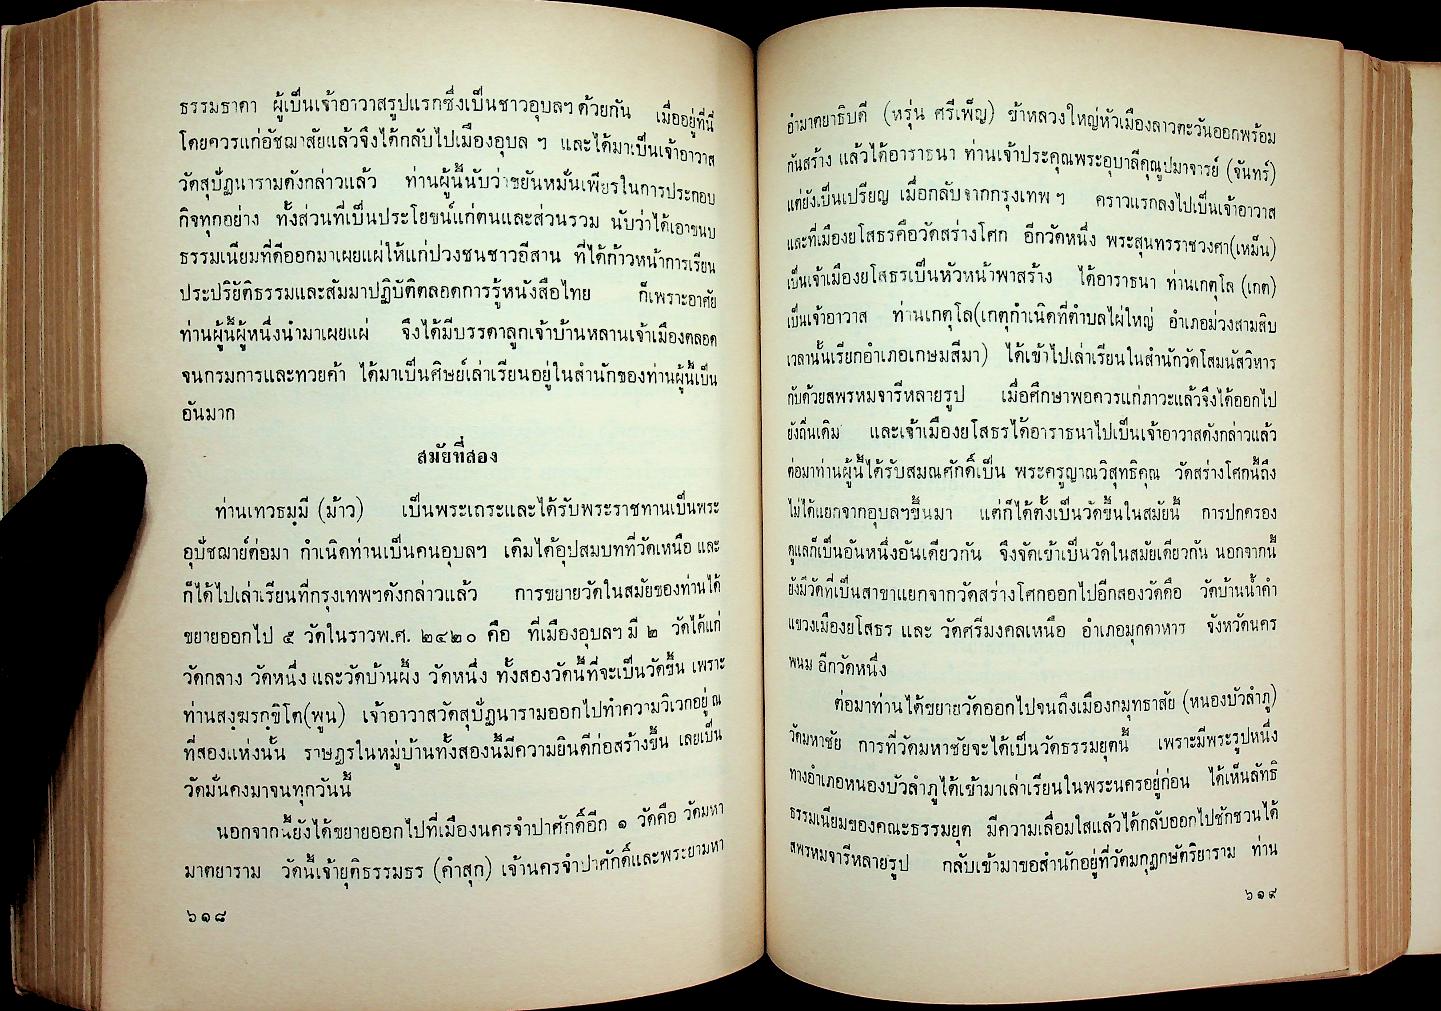 ธรรมธาดา ผู้เป็นเจ้าอาวาสรูปแรกซึ่งเป็นชาวอุบลฯ ด้วยกัน เมื่ออยู่ที่นี่
โดยควรแก่อัชฌาสัยแล้วจึงได้กลับไปเมืองอุบล ฯ และได้มาเป็นเจ้าอาวาส
วัดสุปัฏนารามดังกล่าวแล้ว ท่านผู้นี้นับว่าขยันหมั่นเพียรในการประกอบ
กิจทุกอย่าง ทั้งส่วนที่เป็นประโยชน์แก่ตนและส่วนรวม นับว่าได้เอาขนบ
ธรรมเนียมที่ดีออกมาเผยแผ่ให้แก่ปวงชนชาวอีสาน ที่ได้ก้าวหน้าการเรียน
ประปริยัติธรรมและสัมมาปฏิบัติตลอดการรู้หนังสือไทย ก็เพราะอาศัย
ท่านผู้นี้ผู้หนึ่งนำมาเผยแผ่ จึงได้มีบรรดาลูกเจ้าบ้านหลานเจ้าเมืองตลอด
จนกรมการและทวยค้า ได้มาเป็นศิษย์เล่าเรียนอยู่ในสำนักของท่านผู้นี้เป็น
อันมาก
สมัยที่สอง
ท่านเทวธมฺมี (ม้าว) เป็นพระเถระและได้รับพระราชทานเป็นพระ
อุปัชฌาย์ต่อมา กำเนิดท่านเป็นคนอุบลฯ เดิมได้อุปสมบทที่วัดเหนือ และ
ก็ได้ไปเล่าเรียนที่กรุงเทพฯดังกล่าวแล้ว การขยายวัดในสมัยของท่านได้
ขยายออกไป ๕ วัดในราวพ.ศ. ๒๔๒๐ คือ ที่เมืองอุบลฯ มี ๒ วัดได้แก่
วัดกลาง วัดหนึ่ง และวัดบ้านผึ้ง วัดหนึ่ง ทั้งสองวัดนี้ที่จะเป็นวัดขึ้น เพราะ
ท่านสงฺฆรกฺขิโต(พูน) เจ้าอาวาสวัดสุปัฏนารามออกไปทำความวิเวกอยู่ ณ
ที่สองแห่งนั้น ราษฎรในหมู่บ้านทั้งสองนี้มีความยินดีก่อสร้างขึ้น เลยเป็น
วัดมั่นคงมาจนทุกวันนี้
นอกจากนี้ยังได้ขยายออกไปที่เมืองนครจำปาศักดิ์อีก ๑ วัดคือ วัดมหา
มาตยาราม วัดนี้เจ้ายุติธรรมธร (คำสุก) เจ้านครจำปาศักดิ์และพระยามหา
๖๑๘
อำมาตยาธิบดี (หรุ่น ศรีเพ็ญ) ข้าหลวงใหญ่หัวเมืองลาวตะวันออกพร้อม
กันสร้าง แล้วได้อาราธนา ท่านเจ้าประคุณพระอุบาลีคุณูปมาจารย์ (จันทร์)
แต่ยังเป็นเปรียญ เมื่อกลับจากกรุงเทพ ฯ คราวแรกลงไปเป็นเจ้าอาวาส
และที่เมืองยโสธรคือวัดสร่างโศก อีกวัดหนึ่ง พระสุนทรราชวงศา(เหม็น)
เป็นเจ้าเมืองยโสธรเป็นหัวหน้าพาสร้าง ได้อาราธนา ท่านเกตุโล (เกต)
เป็นเจ้าอาวาส ท่านเกตุโล(เกตุกำเนิดที่ตำบลไผ่ใหญ่ อำเภอม่วงสามสิบ
เวลานั้นเรียกอำเภอเกษมสีมา) ได้เข้าไปเล่าเรียนในสำนักวัดโสมนัสวิหาร
กับด้วยสพรหมจารีหลายรูป เมื่อศึกษาพอควรแก่ภาวะแล้วจึงได้ออกไป
ยังถิ่นเดิม และเจ้าเมืองยโสธรได้อาราธนาไปเป็นเจ้าอาวาสดังกล่าวแล้ว
ต่อมาท่านผู้นี้ได้รับสมณศักดิ์เป็น พระครูญาณวิสุทธิคุณ วัดสร่างโศกนี้ถึง
ไม่ได้แยกจากอุบลฯขึ้นมา แต่ก็ได้ตั้งเป็นวัดขึ้นในสมัยนี้ การปกครอง
ดูแลก็เป็นอันหนึ่งอันเดียวกัน จึงจัดเข้าเป็นวัดในสมัยเดียวกัน นอกจากนี้
ยังมีวัดที่เป็นสาขาแยกจากวัดสร่างโศกออกไปอีกสองวัดคือ วัดบ้านน้ำคำ
แขวงเมืองยโสธร และ วัดศรีมงคลเหนือ อำเภอมุกดาหาร จังหวัดนคร
พนม อีกวัดหนึ่ง
ต่อมาท่านได้ขยายวัดออกไปจนถึงเมืองกมุทธาสัย (หนองบัวลำภู)
วัดมหาชัย การที่วัดมหาชัยจะได้เป็นวัดธรรมยุตนี้ เพราะมีพระรูปหนึ่ง
ทางอำเภอหนองบัวลำภูได้เข้ามาเล่าเรียนในพระนครอยู่ก่อน ได้เห็นลัทธิ
ธรรมเนียมของคณะธรรมยุต มีความเลื่อมใสแล้วได้กลับออกไปชักชวนได้
สพรหมจารีหลายรูป กลับเข้ามาขอสำนักอยู่ที่วัดมกุฎกษัตริยาราม ท่าน
๖๑๙